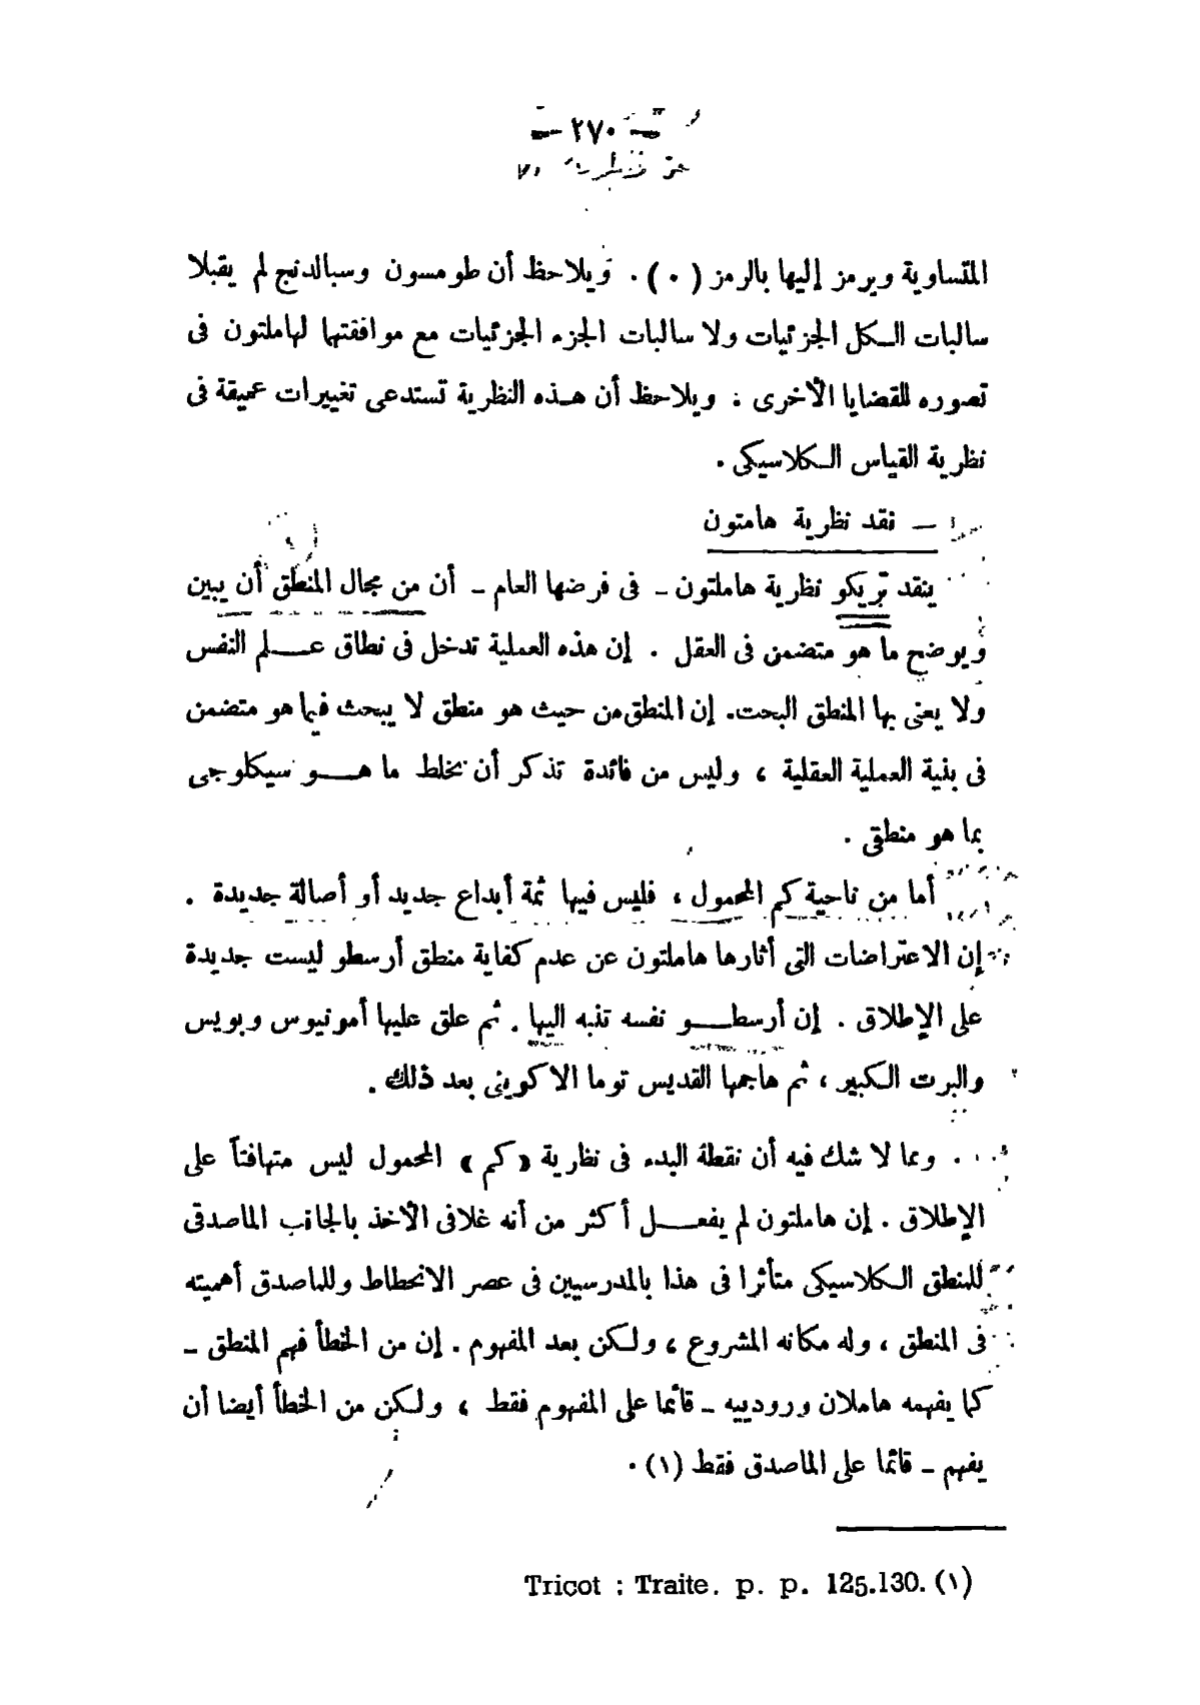 — ٢٧٠ —
المتساوية ويرمز إليها بالرمز ( ٠ ) . ويلاحظ أن طومسون وسبالدنج لم يقبلا
سالبات الكل الجزئيات ولا سالبات الجزء الجزئيات مع موافقتها لهاملتون فى
تصوره للقضايا الأخرى : ويلاحظ أن هذه النظرية تستدعى تغييرات عميقة فى
نظرية القياس الكلاسيكى .
— نقد نظرية هامتون
ينقد تريكو نظرية هاملتون – فى فرضها العام – أن من مجال المنطق أن يبين
ويوضح ما هو متضمن فى العقل . إن هذه العملية تدخل فى نطاق علم النفس
ولا يعنى بها المنطق البحت. إن المنطق من حيث هو منطق لا يبحث فيما هو متضمن
فى بنية العملية العقلية ، وليس من فائدة تذكر أن يخلط ما هو سيكلوجى
بما هو منطقى .
أما من ناحية كم المحمول ، فليس فيها ثمة أبداع جديد أو أصالة جديدة .
إن الاعتراضات التى أثارها هاملتون عن عدم كفاية منطق أرسطو ليست جديدة
على الإطلاق . إن أرسطو نفسه تنبه اليها . ثم علق عليها أمونيوس وبويس
والبرت الكبير ، ثم هاجمها القديس توما الاكوينى بعد ذلك .
ومما لا شك فيه أن نقطة البدء فى نظرية «كم» المحمول ليس متهافتاً على
الإطلاق . إن هاملتون لم يفعل أكثر من أنه غلافى الأخذ بالجانب الماصدقى
للمنطق الكلاسيكى متأثرا فى هذا بالمدرسيين فى عصر الانحطاط وللماصدق أهميته
فى المنطق ، وله مكانه المشروع ، ولكن بعد المفهوم . إن من الخطأ فهم المنطق –
كما يفهمه هاملان ورودييه – قائما على المفهوم فقط ، ولكن من الخطأ أيضا أن
يفهم – قائما على الماصدق فقط (١) .
Tricot : Traite. p. p. 125.130. (١)